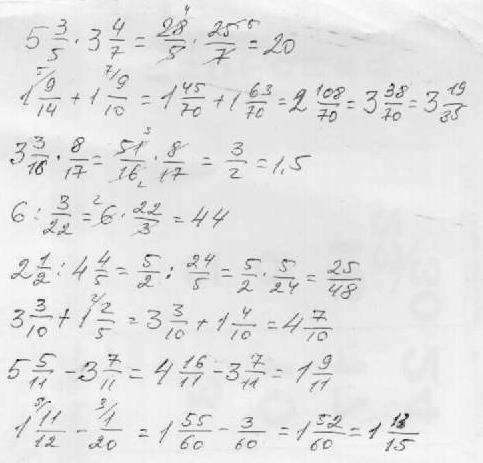 5 3/5 · 3 4/7 = 28/5 · 25/7 = 20
1 9/14 + 1 9/10 = 1 45/70 + 1 63/70 = 2 108/70 = 3 38/70 = 3 19/35
3 3/16 · 8/17 = 51/16 · 8/17 = 3/2 = 1,5
6 : 3/22 = 6 · 22/3 = 44
2 1/2 : 4 4/5 = 5/2 : 24/5 = 5/2 · 5/24 = 25/48
3 3/10 + 1 2/5 = 3 3/10 + 1 4/10 = 4 7/10
5 5/11 - 3 7/11 = 4 16/11 - 3 7/11 = 1 9/11
1 11/12 - 1/20 = 1 55/60 - 3/60 = 1 52/60 = 1 13/15